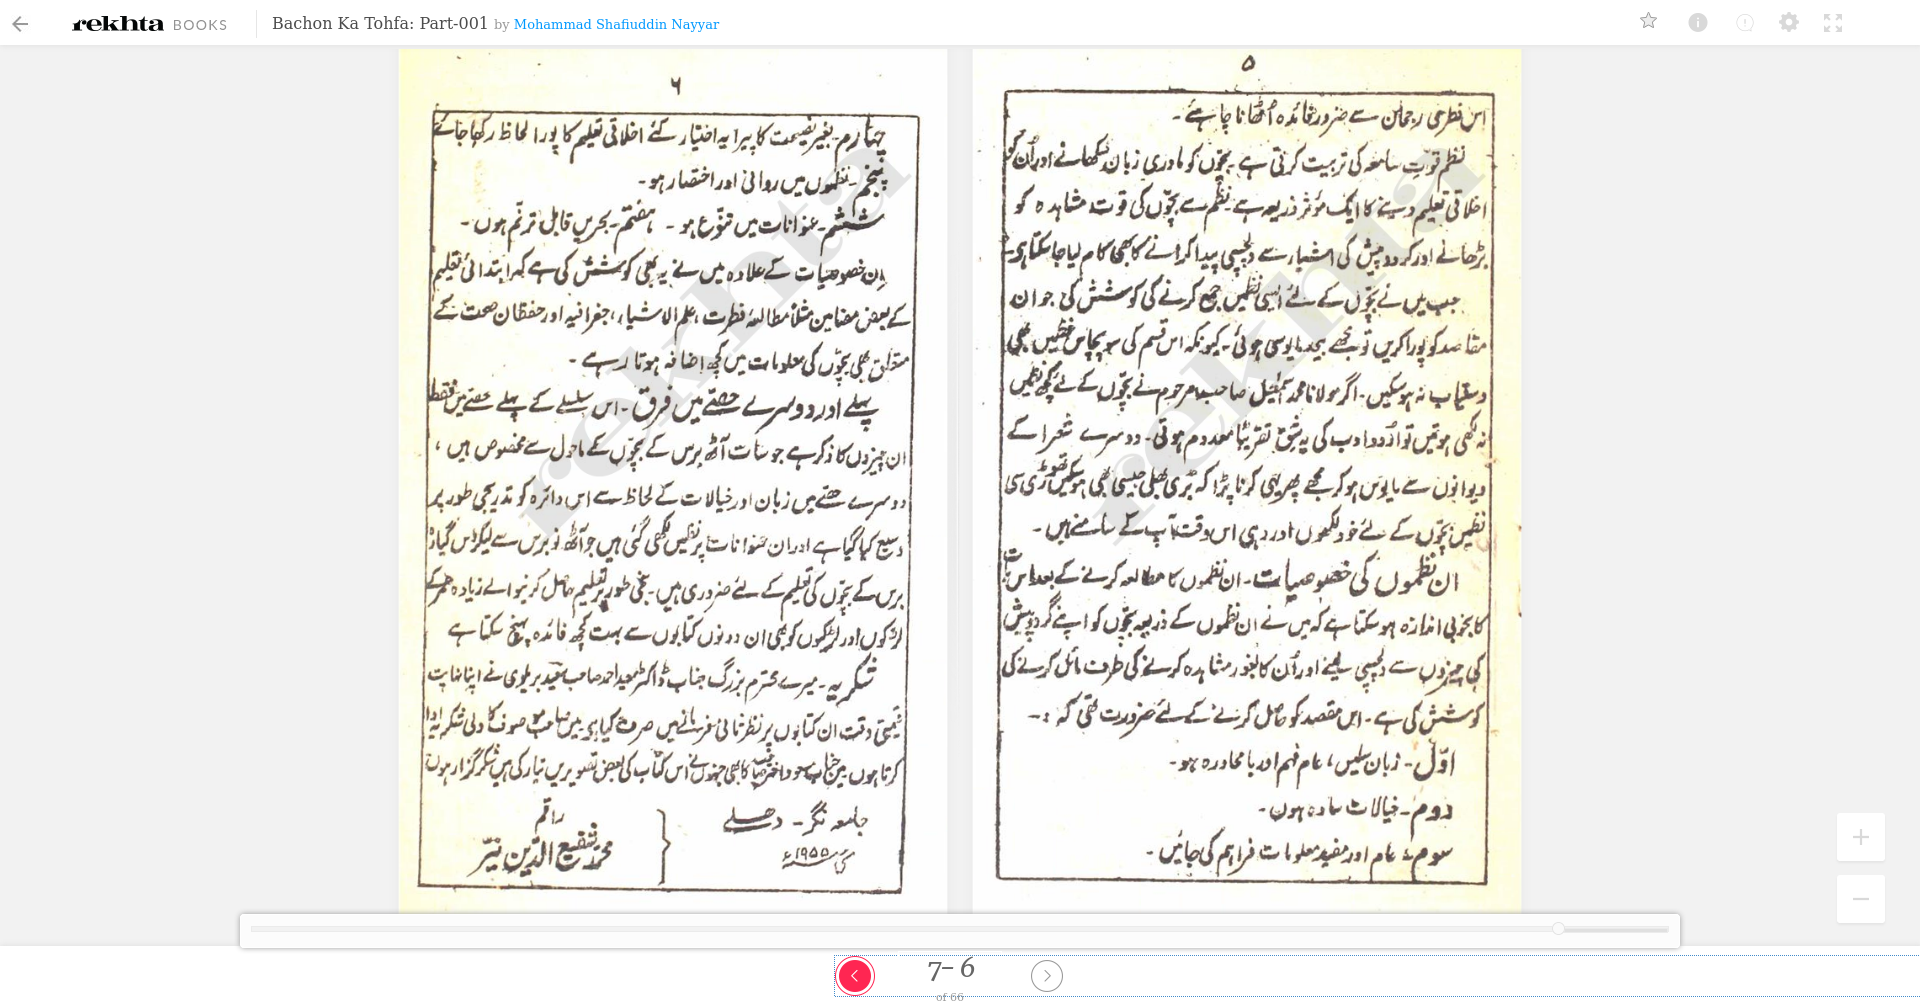 rekhta BOOKS
Bachon Ka Tohfa: Part-001 by Mohammad Shafiuddin Nayyar
۵
اس فطری رجحان سے ضرور فائدہ اُٹھانا چاہئے۔
نظم قوتِ سامعہ کی تربیت کرتی ہے۔ بچّوں کو مادری زبان سکھانے اور اُن کو
اخلاقی تعلیم دینے کا ایک مؤثر ذریعہ ہے۔ نظم سے بچّوں کی قوت مشاہدہ کو
بڑھانے اور گردوپیش کی اشیار سے دلچسپی پیدا کرانے کا بھی کام لیا جا سکتا ہے۔
جب میں نے بچّوں کے لئے ایسی نظمیں جمع کرنے کی کوشش کی جو ان
مقاصد کو پورا کریں تو مجھے بیحد مایوسی ہوئی۔ کیونکہ اس قسم کی سو پچاس نظمیں بھی
دستیاب نہ ہو سکیں۔ اگر مولانا محمد اسمٰعیل صاحب مرحوم نے بچّوں کے لئے کچھ نظمیں
نہ لکھی ہوتیں تو اُردو ادب کی یہ شِق تقریبًا معدوم ہوتی۔ دوسرے شعرا کے
دیوانوں سے مایوس ہو کر مجھے پھر یہی کرنا پڑا کہ بُری بھلی جیسی بھی ہو سکیں تھوڑی سی
نظمیں بچّوں کے لئے خود لکھوں اور وہی اس وقت آپ کے سامنے ہیں۔
ان نظموں کی خصوصیات۔ ان نظموں کا مطالعہ کرنے کے بعد اس بات
کا بخوبی اندازہ ہو سکتا ہے کہ میں نے ان نظموں کے ذریعہ بچّوں کو اپنے گردوپیش
کی چیزوں سے دلچسپی لینے اور اُن کا بغور مشاہدہ کرنے کی طرف مائل کرنے کی
کوشش کی ہے۔ اس مقصد کو حاصل کرنے کے لئے ضرورت تھی کہ :۔
اوّل۔ زبان سلیس، عام فہم اور بامحاورہ ہو۔
دوم۔ خیالات سادہ ہوں۔
سوم۔ عام اور مفید معلومات فراہم کی جائیں۔
۶
چہارم۔ بغیر نصیحت کا پیرایہ اختیار کئے اخلاقی تعلیم کا پورا لحاظ رکھا جائے
پنجم۔ نظموں میں روانی اور اختصار ہو۔
ششم۔ عنوانات میں تنوّع ہو۔ ہفتم۔ بحریں قابل ترنّم ہوں۔
اِن خصوصیات کے علاوہ میں نے یہ بھی کوشش کی ہے کہ ابتدائی تعلیم
کے بعض مضامین مثلاً مطالعۂ فطرت، علم الاشیار، جغرافیہ اور حفظان صحت کے
متعلق بھی بچّوں کی معلومات میں کچھ اضافہ ہوتا رہے۔
پہلے اور دوسرے حصّے میں فرق۔ اس سلسلے کے پہلے حصّے میں فقط
ان چیزوں کا ذکر ہے جو سات آٹھ برس کے بچّوں کے ماحول سے مخصوص ہیں،
دوسرے حصّے میں زبان اور خیالات کے لحاظ سے اس دائرہ کو تدریجی طور پر
وسیع کیا گیا ہے اور ان عنوانات پر نظمیں لکھی گئی ہیں جو آٹھ نو برس سے لیکر دس گیارہ
برس کے بچّوں کی تعلیم کے لئے ضروری ہیں۔ نجی طور پر تعلیم حاصل کرنیوالے زیادہ عمر کے
لڑکوں اور لڑکیوں کو بھی ان دونوں کتابوں سے بہت کچھ فائدہ پہنچ سکتا ہے
شکریہ۔ میرے محترم بزرگ جناب ڈاکٹر سعید احمد صاحب سعید بریلوی نے اپنا نہایت
قیمتی وقت ان کتابوں پر نظر ثانی فرمانے میں صرف کیا ہے۔ میں صاحب موصوف کا دلی شکریہ ادا
کرتا ہوں میں جناب مسعود اختر صاحب کا بھی جنہوں نے اس کتاب کی بعض تصویریں تیار کی ہیں شکر گزار ہوں
جامعہ نگر۔ دھلے
مئی ۱۹۵۵ء
راقم
محمد شفیع الدّین نیّر
rekhta
rekhta
7– 6
of 66